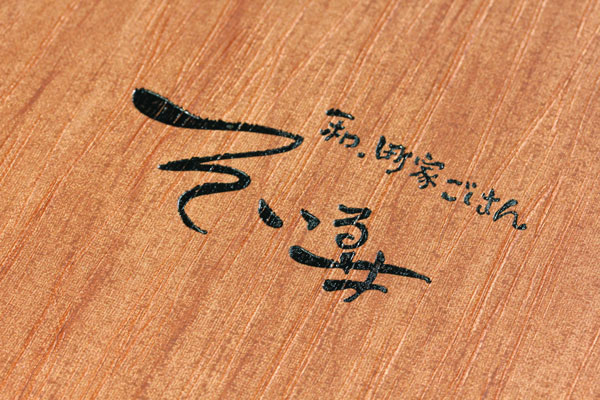 和、町家ごはん
そいるせ